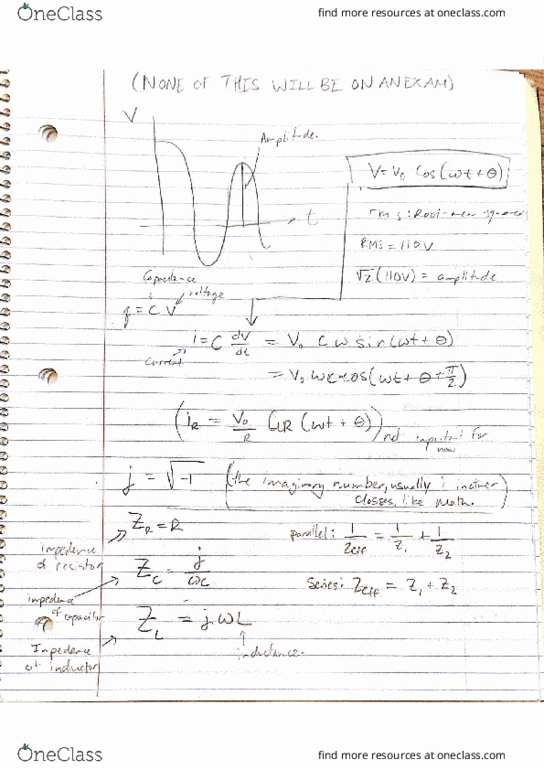 OneClass
find more resources at oneclass.com
(NONE OF THIS WILL BE ON AN EXAM)
V
Amplitude.
t
V = V₀ Cos(ωt + θ)
rms: Root-mean squared
RMS = 110V
√2 (110V) = amplitude
Capacitance
voltage
q = C V
i = C dV/dt = V₀ C ω sin(ωt + θ)
Current
= V₀ ωc cos(ωt + θ + π/2)
(i_R = V₀/R (ωt + θ)) not important for
now
j = √-1 (the imaginary number, usually i in other
classes, like math.)
Z_R = R
impedence
of resistor
parallel: 1/Z_eff = 1/Z₁ + 1/Z₂
Z_C = j/ωc
series: Z_eff = Z₁ + Z₂
impedence
of capacitor
Z_L = jωL
Impedence
of inductor
inductance.
OneClass
find more resources at oneclass.com